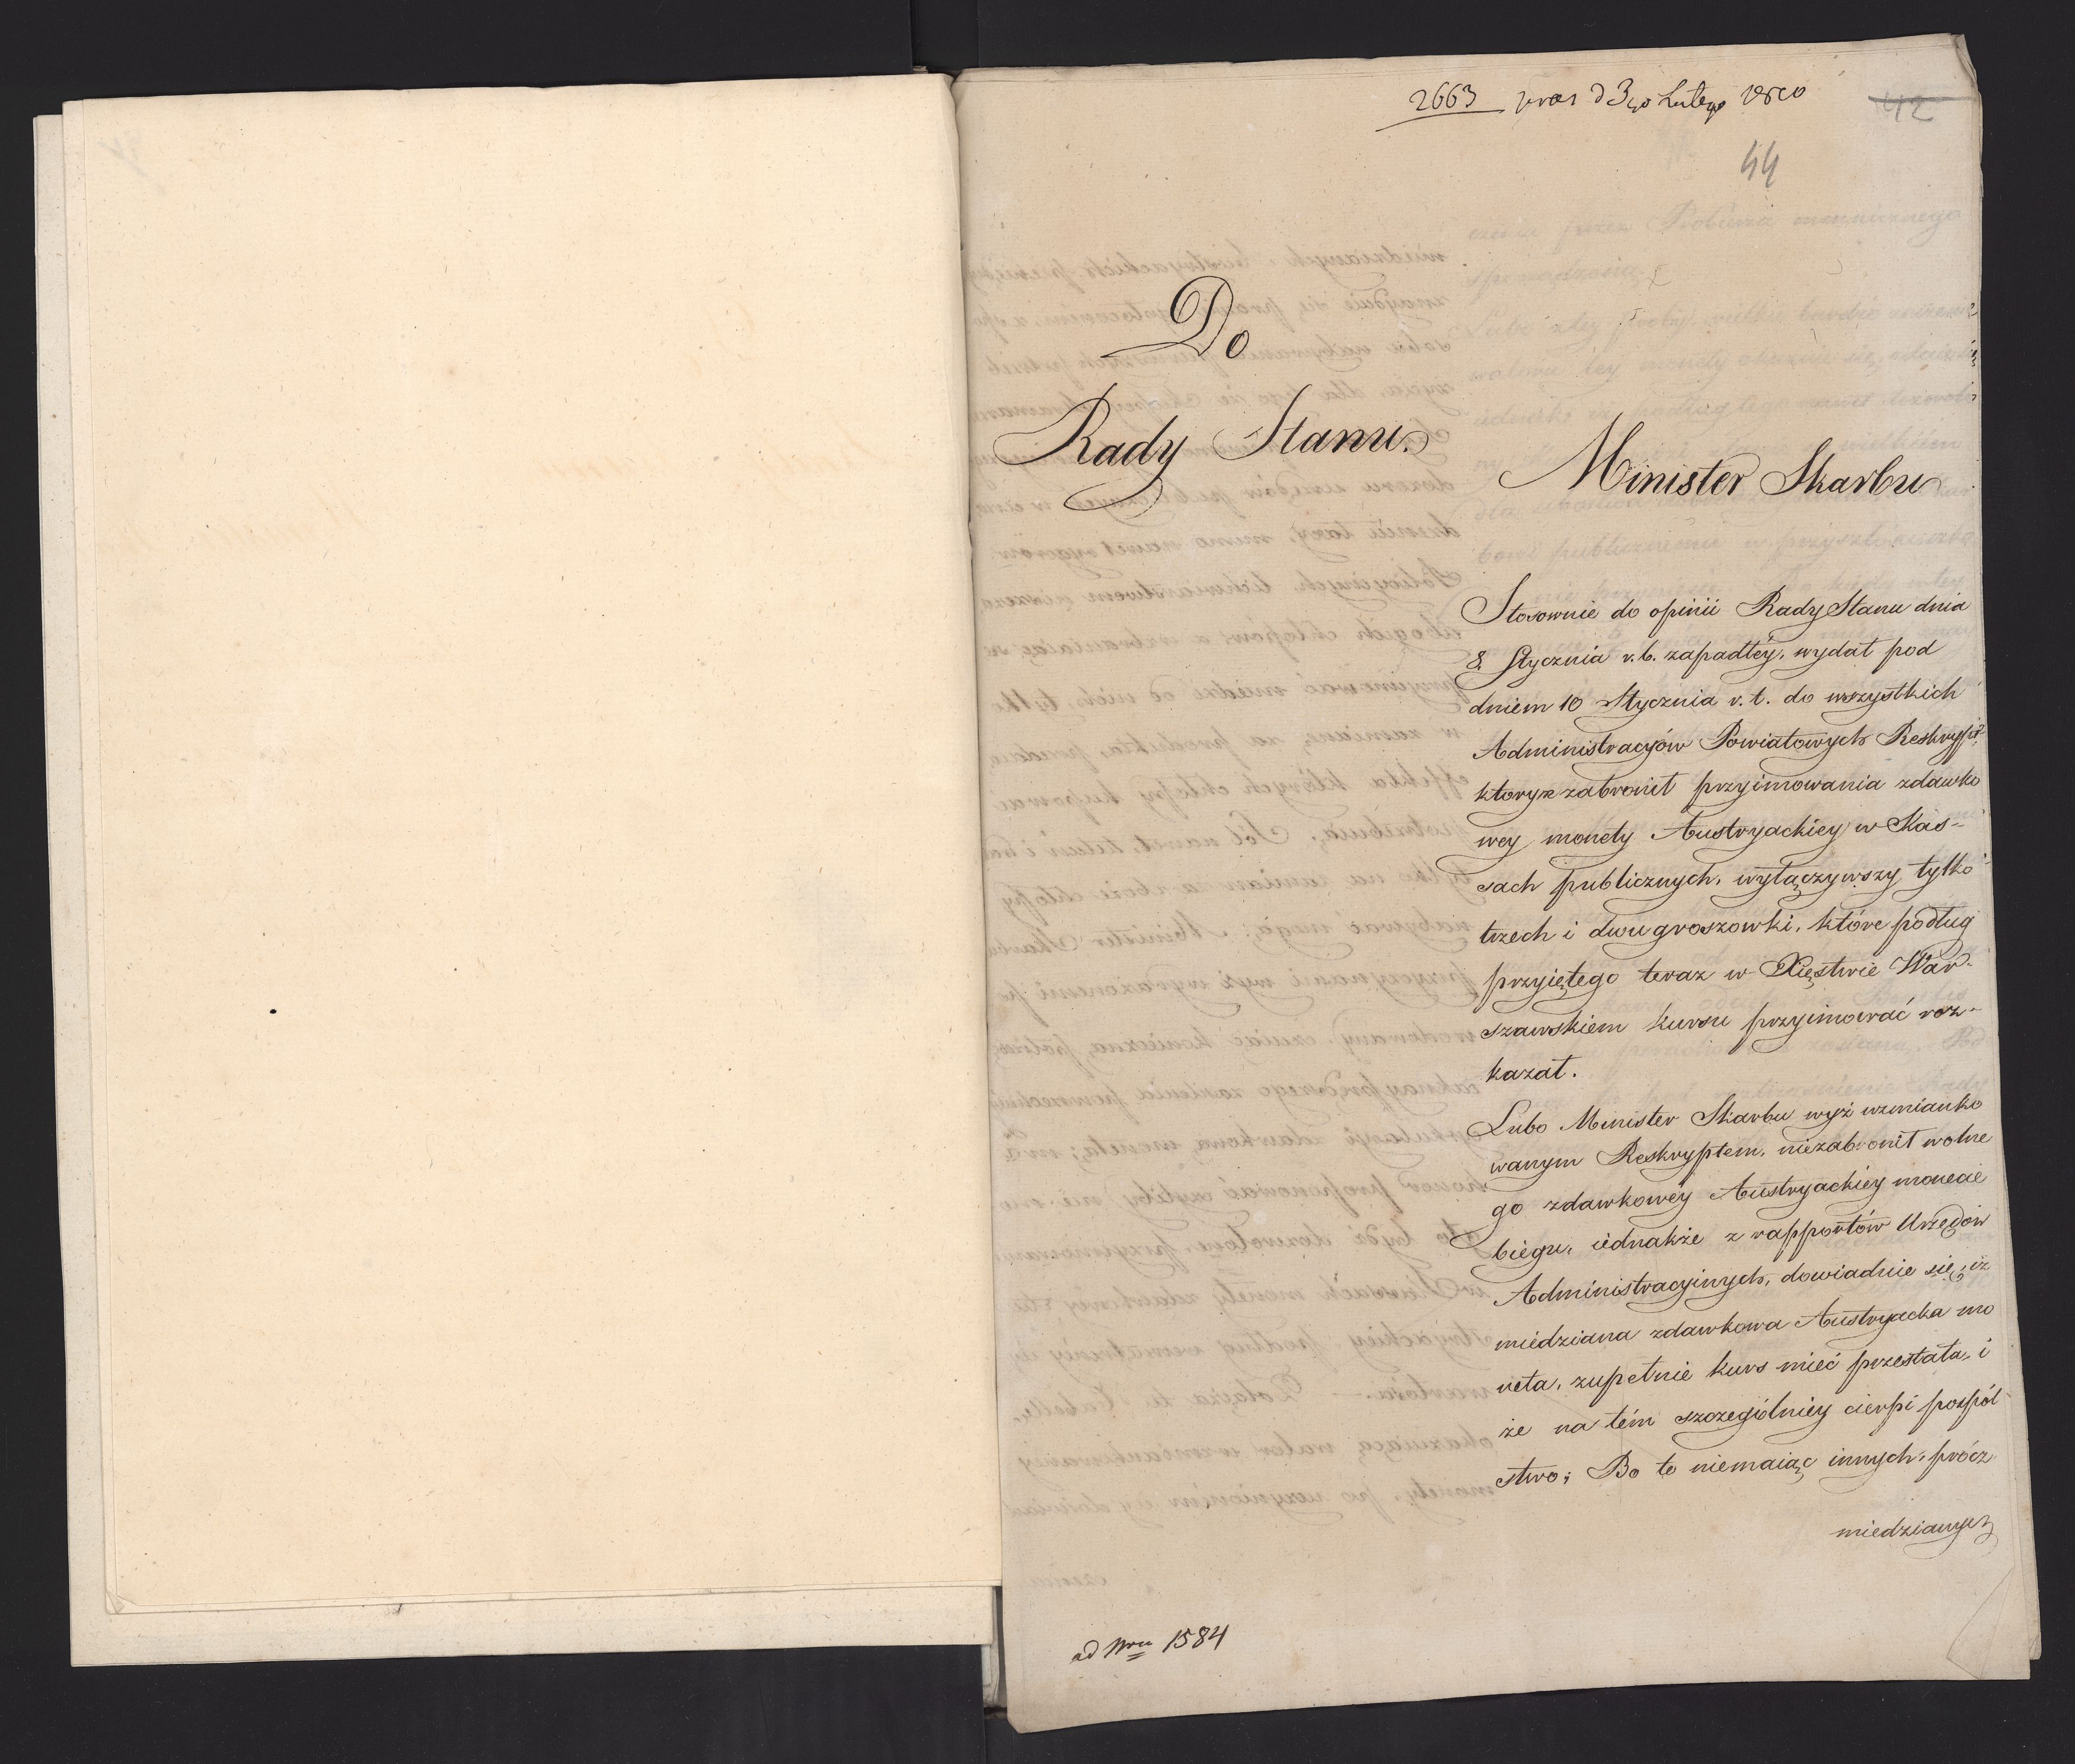 2663 praes d 3go Lutego 1810
42
44
Do
Rady Stanu.
Minister Skarbu
Stosownie do opinii Rady Stanu dnia
8. Stycznia r. b. zapadłéy, wydał pod
dniem 10 Stycznia r. t. do wszystkich
Administracyów Powiatowych Reskrypt,
którym zabronił przyimowania zdawko
wey monety Austryackiey w Kas-
sach publicznych, wyłączywszy tylko
trzech i dwugroszowki, które podług
przyiętego teraz w Xięstwie War-
szawskiem kursu przyimować roz-
kazał.
Lubo Minister Skarbu wyż wzmianko
wanym Reskryptem, niezabronił wolne
go zdawkowéy Austryackiéy monecie
biegu, iednakże z rapportów Urzędów
Administracyinych, dowiaduie się, iż
miédziana zdawkowa Austryacka mo
neta, zupełnie kurs mieć przestała, i
że na tém szczególniey cierpi pospól
stwo; Bo to niemaiąc innych, prócz
miedzianych
ad Nru 1584